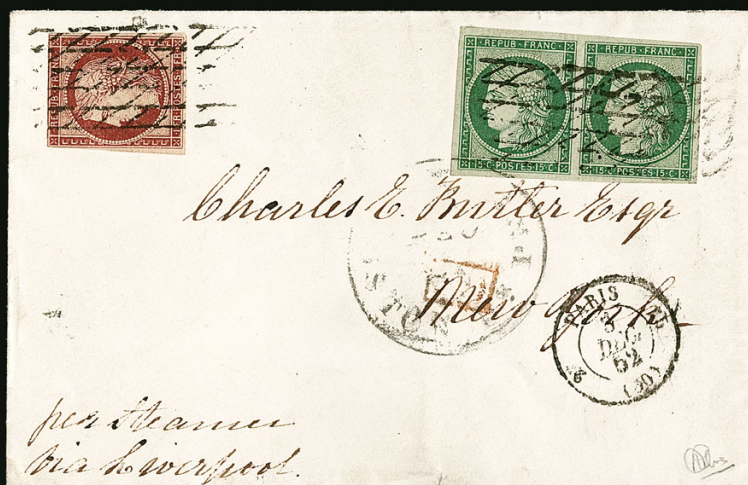 REPUB FRANC REPUB FRANC
15 C POSTES 15 C 15 C POSTES 15 C
Charles E. Butler Esqr
New York
PARIS
3
DEC
52
(60)
per Steamer
via Liverpool.